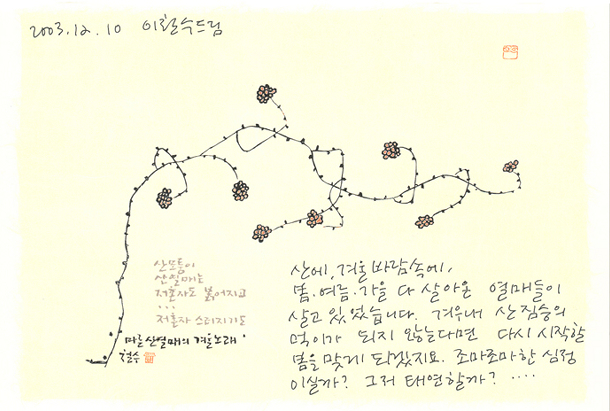 2003.12.10 이철수드림
산모퉁이
산열매는
저혼자도 붉어지고
...
저혼자 스러지기도
마른산열매의 겨울노래
철수
산에, 겨울바람속에,
봄.여름.가을 다 살아온 열매들이
살고 있었습니다. 겨우내 산짐승의
먹이가 되지 않는다면 다시 시작할
봄을 맞게 되겠지요. 조마조마한 심정
이실까? 그저 태연할까? ....